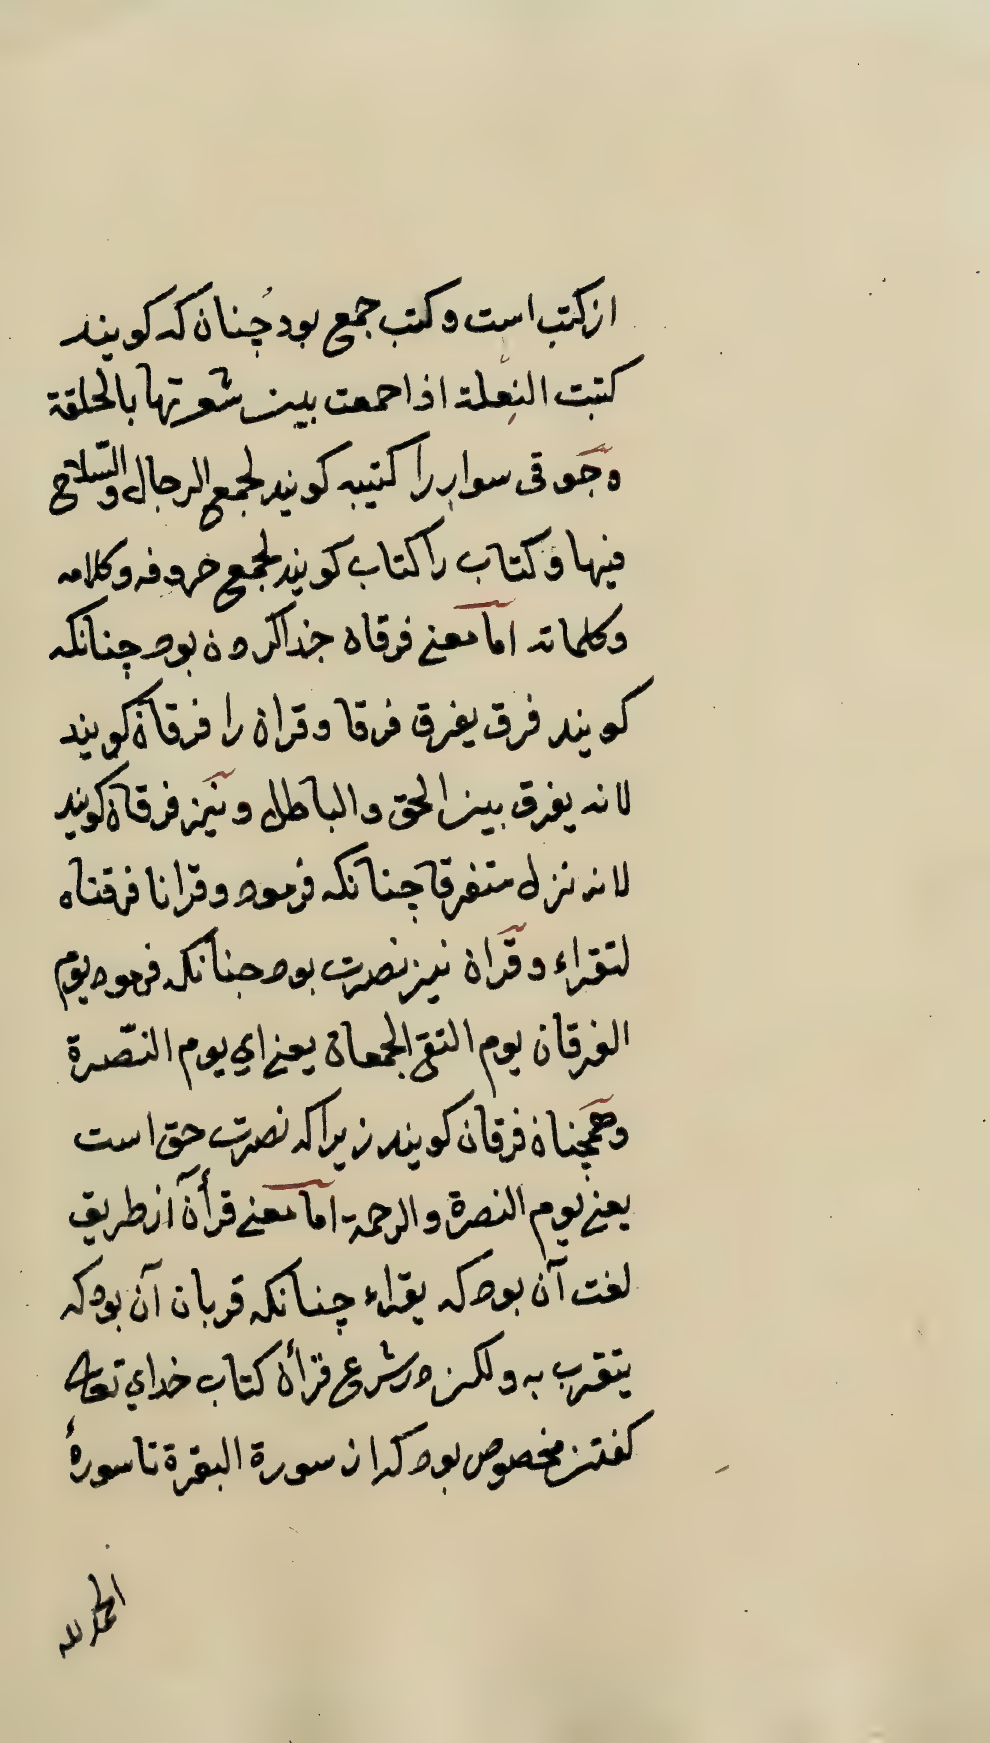 از کتب است و کتب جمع بود چنان که کویند
کتبت النعلة اذا جمعت بین شعرتها بالحلقة
و جوقی سوار را کتیبه کویند لجمع الرجال والسّلاح
فیها و کتاب را کتاب کویند لجمع حروفه و کلامه
و کلماته امّا معنی فرقان جدا کردن بود چنانکه
کویند فرق یفرق فرقا و قران را فرقان کویند
لانه یفرق بین الحق و الباطل و نیز فرقان کویند
لانه نزل متفرقا چنانکه فرمود و قرانا فرقناه
لتقراء و قران نیز نصرت بود چنانکه فرمود یوم
الفرقان یوم التقی الجمعان یعنی ای یوم النّصرة
و همچنان فرقان کویند زیرا که نصرت حق است
یعنی یوم النصرة و الرحمة امّا معنی قرأن از طریق
لغت آن بود که یقراء چنانکه قربان آن بود که
یتقرب به و لکن در شرع قرأن کتاب خدای تعالی
کفتن مخصوص بود که از سورة البقرة تا سورهٔ
الحمد لله